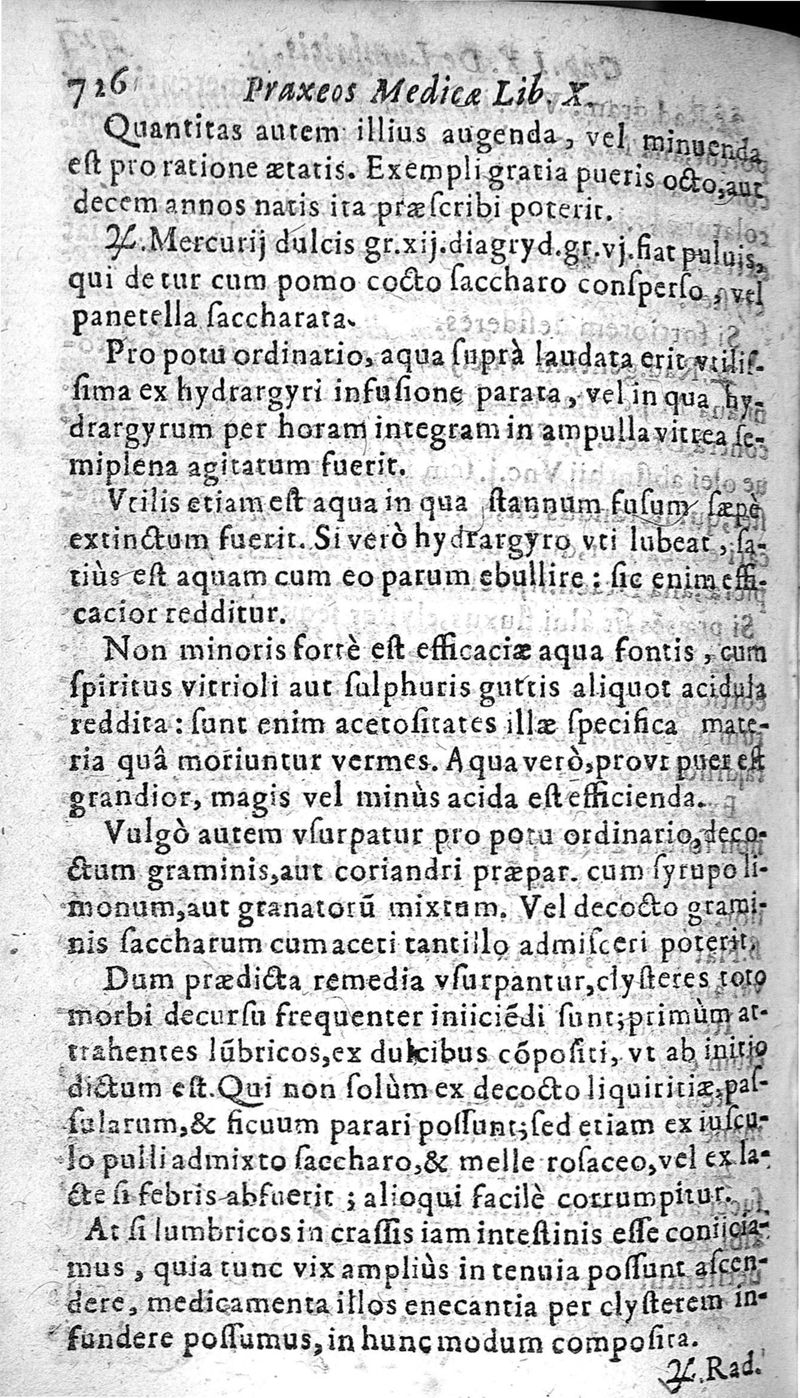 726 Praxeos Medicæ Lib. X.
Quantitas autem illius augenda, vel minuenda
eſt pro ratione ætatis. Exempli gratia pueris octo, aut
decem annos natis ita præſcribi poterit.
℞. Mercurij dulcis gr. xij. diagryd. gr. vj. fiat puluis,
qui detur cum pomo cocto ſaccharo conſperſo, vel
panetella ſaccharata.
Pro potu ordinario, aqua ſuprà laudata erit vtiliſ-
ſima ex hydrargyri infuſione parata, vel in qua hy-
drargyrum per horam integram in ampulla vitrea ſe-
miplena agitatum fuerit.
Vtilis etiam eſt aqua in qua ſtannum fuſum ſæpè
extinctum fuerit. Si verò hydrargyro vti lubeat, ſa-
tiùs eſt aquam cum eo parum ebullire: ſic enim effi-
cacior redditur.
Non minoris fortè eſt efficaciæ aqua fontis, cum
ſpiritus vitrioli aut ſulphuris guttis aliquot acidula
reddita: ſunt enim acetoſitates illæ ſpecifica mate-
ria quâ moriuntur vermes. Aqua verò, provt puer eſt
grandior, magis vel minùs acida eſt efficienda.
Vulgò autem vſurpatur pro potu ordinario, deco-
ctum graminis, aut coriandri præpar. cum ſyrupo li-
monum, aut granatorũ mixtum. Vel decocto grami-
nis ſaccharum cum aceti tantillo admiſceri poterit.
Dum prædicta remedia vſurpantur, clyſteres toto
morbi decurſu frequenter iniiciẽdi ſunt; primùm at-
trahentes lũbricos, ex dulcibus cõpoſiti, vt ab initio
dictum eſt. Qui non ſolùm ex decocto liquiritiæ, paſ-
ſularum, & ficuum parari poſſunt; ſed etiam ex iuſcu-
lo pulli admixto ſaccharo, & melle roſaceo, vel ex la-
cte ſi febris abfuerit; alioqui facilè corrumpitur.
At ſi lumbricos in craſſis iam inteſtinis eſſe coniicia-
mus, quia tunc vix ampliùs in tenuia poſſunt aſcen-
dere, medicamenta illos enecantia per clyſterem in-
fundere poſſumus, in hunc modum compoſita.
℞. Rad.